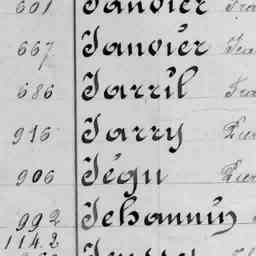 601 Janvier
667 Janvier
686 Jarril
916 Jarry
906 Jégu
992 Jehannin
1142